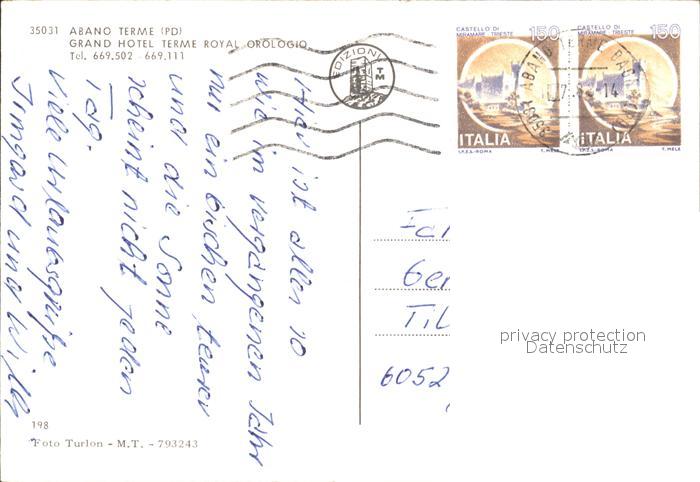 35031 ABANO TERME (PD)
GRAND HOTEL TERME ROYAL OROLOGIO
Tel. 669.502 - 669.111
EDIZIONI
TM
CASTELLO DI
MIRAMARE TRIESTE
150
ITALIA
I.P.Z.S.-ROMA
T. MELE
CASTELLO DI
MIRAMARE TRIESTE
150
ITALIA
I.P.Z.S.-ROMA
T. MELE
ABANO TERME
Hier ist alles so
wie im vergangenen Jahr
nur ein bischen teurer
und die Sonne
scheint nicht jeden
Tag.
Viele Urlaubsgrüße
Irmgard und Willy
6052
privacy protection
Datenschutz
198
Foto Turlon - M.T. - 793243